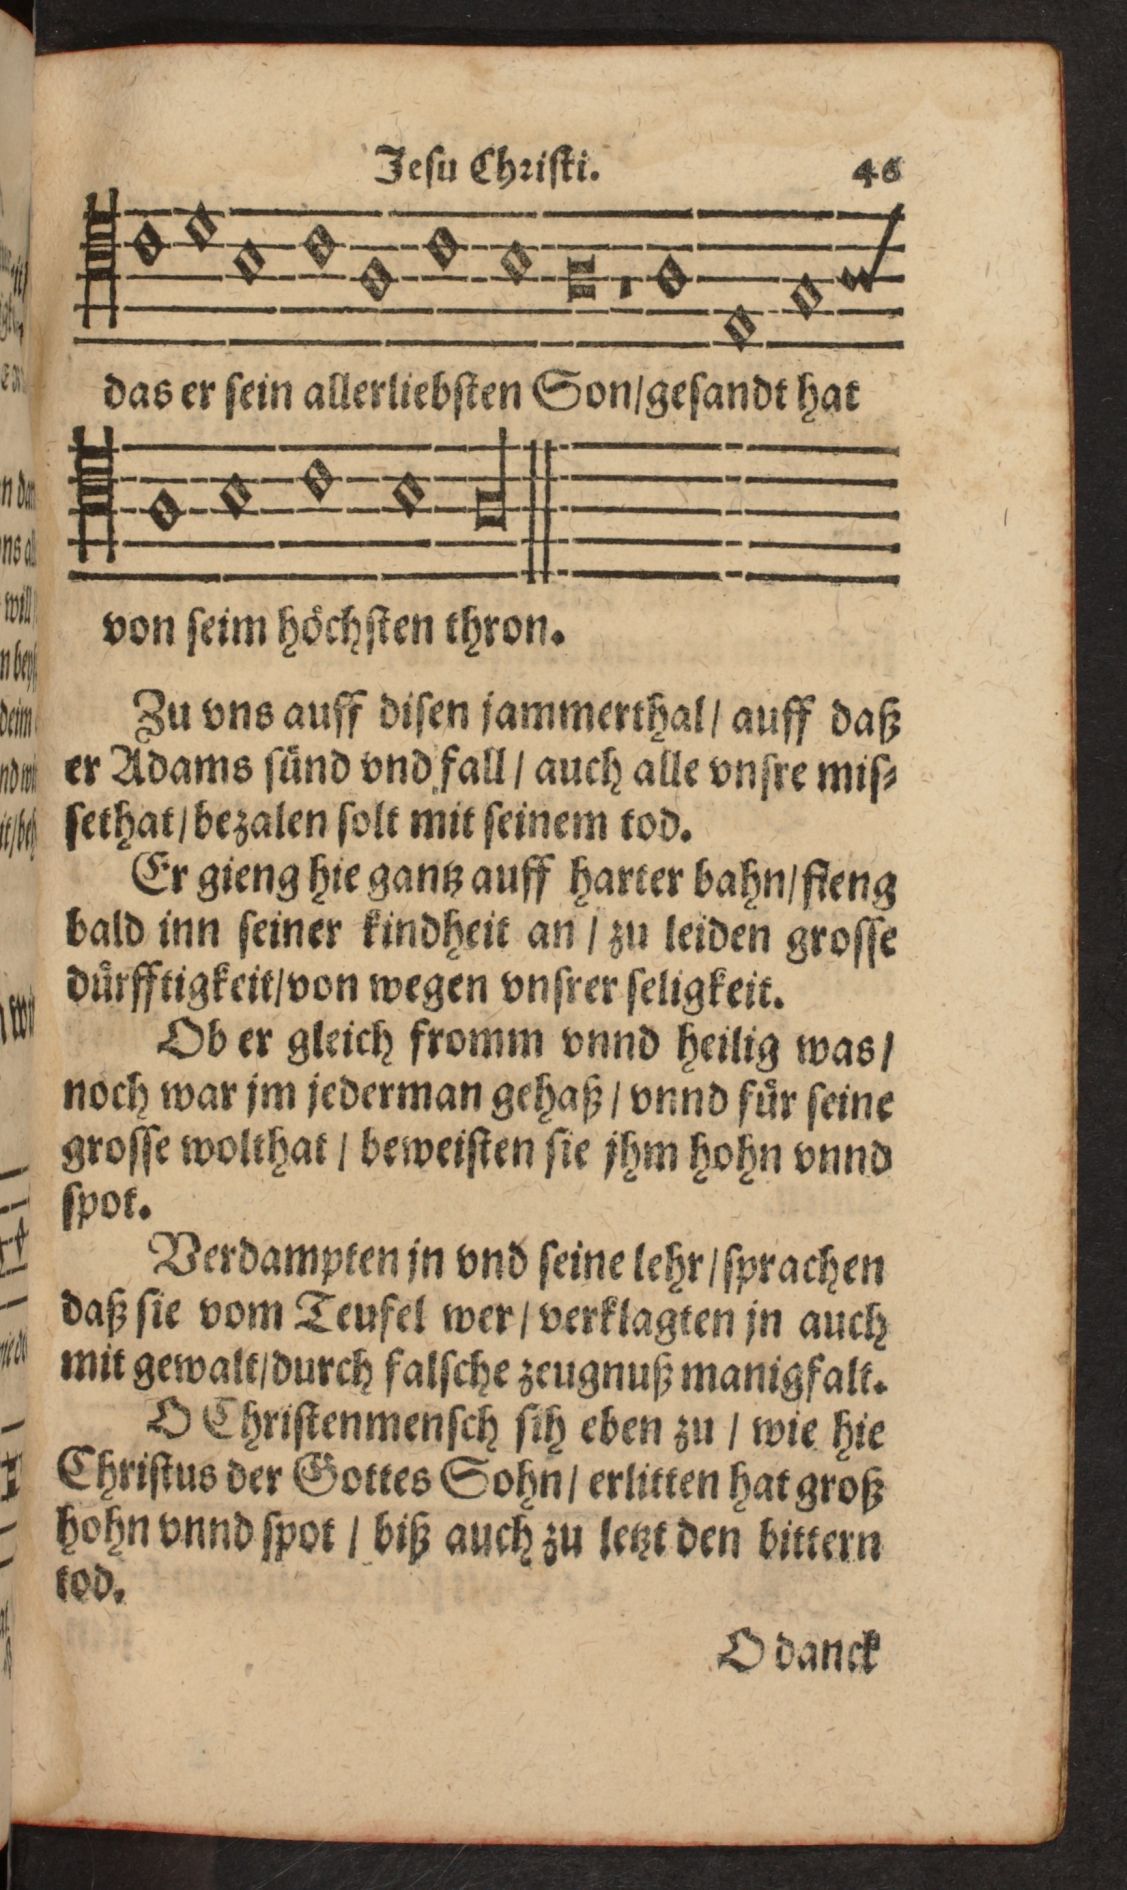 Jesu Christi. 46
das er sein allerliebsten Son/gesandt hat
von seim höchsten thron.
Zu vns auff disen jammerthal/ auff daß
er Adams sünd vnd fall/ auch alle vnsre mis⸗
sethat/bezalen solt mit seinem tod.
Er gieng hie gantz auff harter bahn/fieng
bald inn seiner kindheit an / zu leiden grosse
dürfftigkeit/von wegen vnsrer seligkeit.
Ob er gleich fromm vnnd heilig was/
noch war jm jederman gehaß / vnnd für seine
grosse wolthat / beweisten sie jhm hohn vnnd
spot.
Verdampten jn vnd seine lehr/sprachen
daß sie vom Teufel wer/ verklagten jn auch
mit gewalt/durch falsche zeugnuß manigfalt.
O Christenmensch sih eben zu / wie hie
Christus der Gottes Sohn/ erlitten hat groß
hohn vnnd spot / biß auch zu letzt den bittern
tod.
O danck